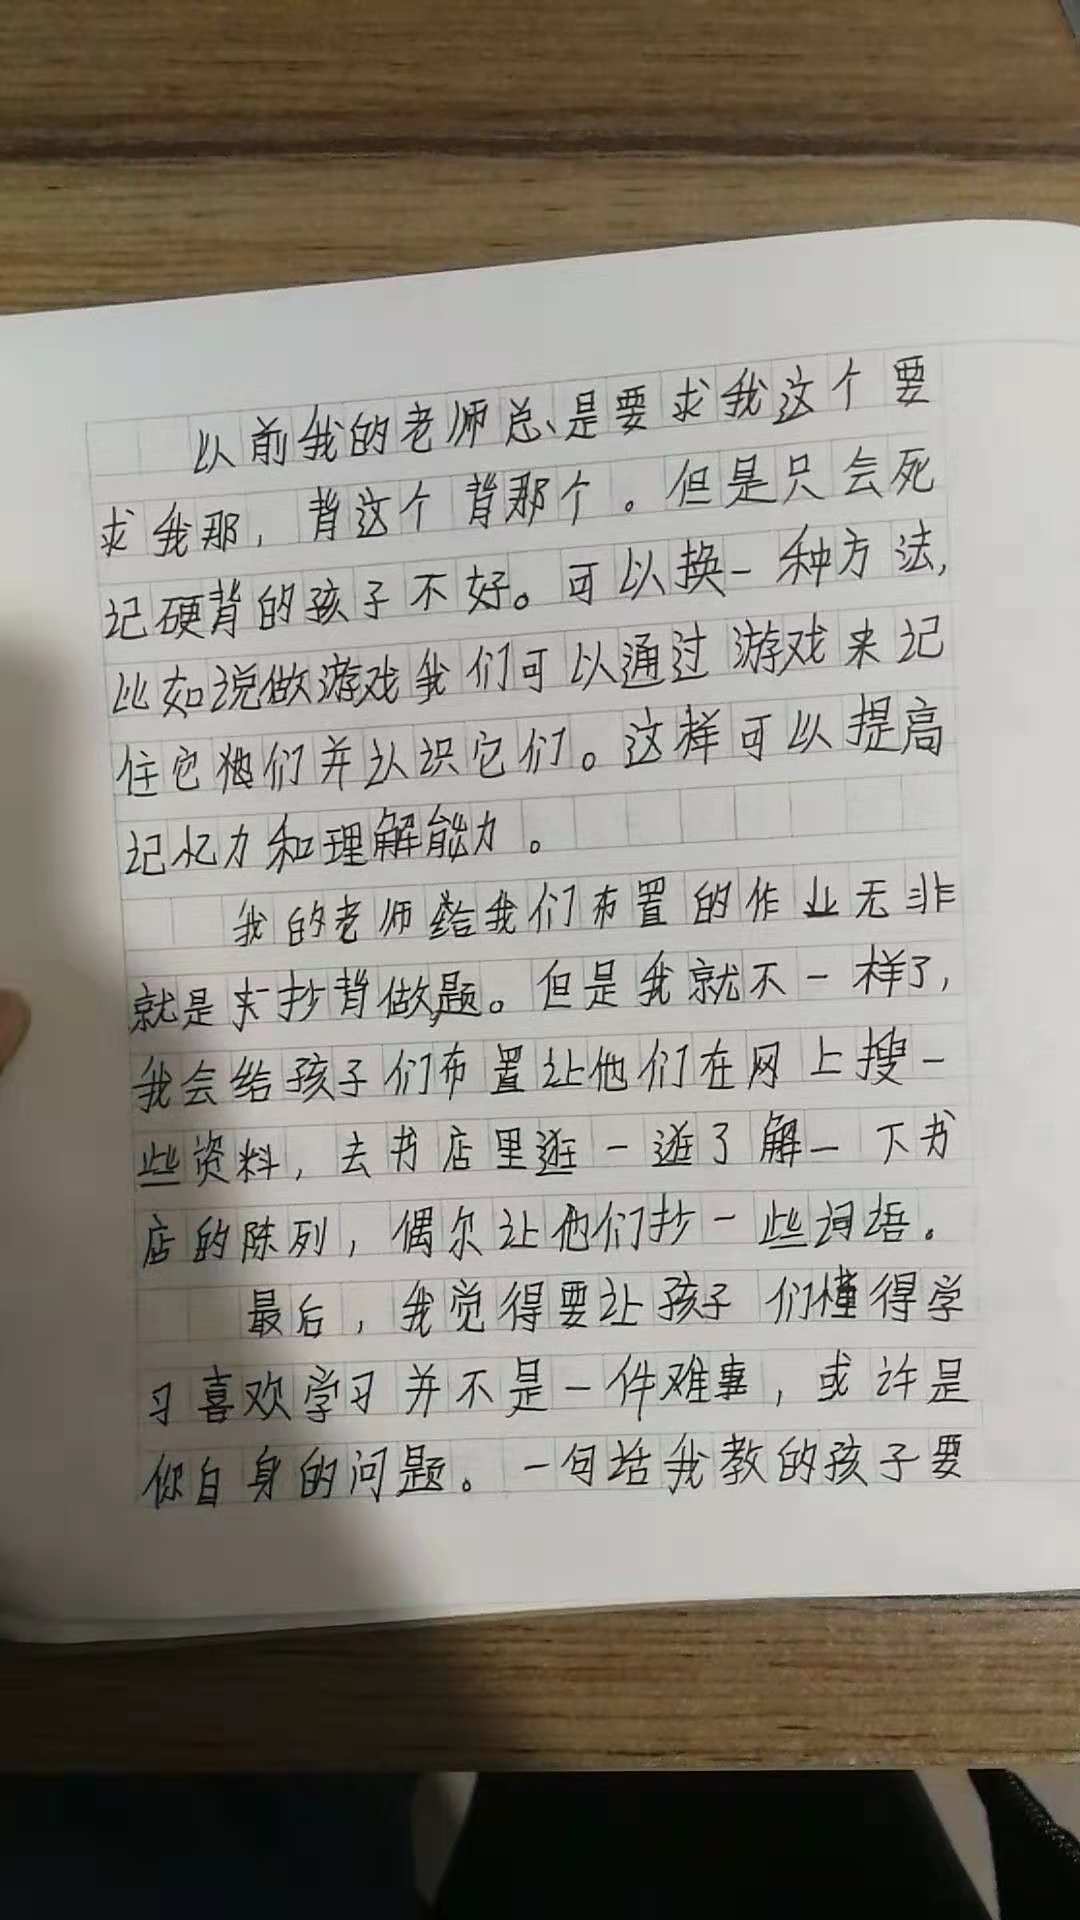 以前我的老师总是要求我这个要
求我那，背这个背那个。但是只会死
记硬背的孩子不好。可以换一种方法，
比如说做游戏我们可以通过游戏来记
住它们并认识它们。这样可以提高
记忆力和理解能力。
我的老师给我们布置的作业无非
就是抄背做题。但是我就不一样了，
我会给孩子们布置让他们在网上搜一
些资料，去书店里逛一逛了解一下书
店的陈列，偶尔让他们抄一些词语。
最后，我觉得要让孩子们懂得学
习喜欢学习并不是一件难事，或许是
你自身的问题。一句话我教的孩子要